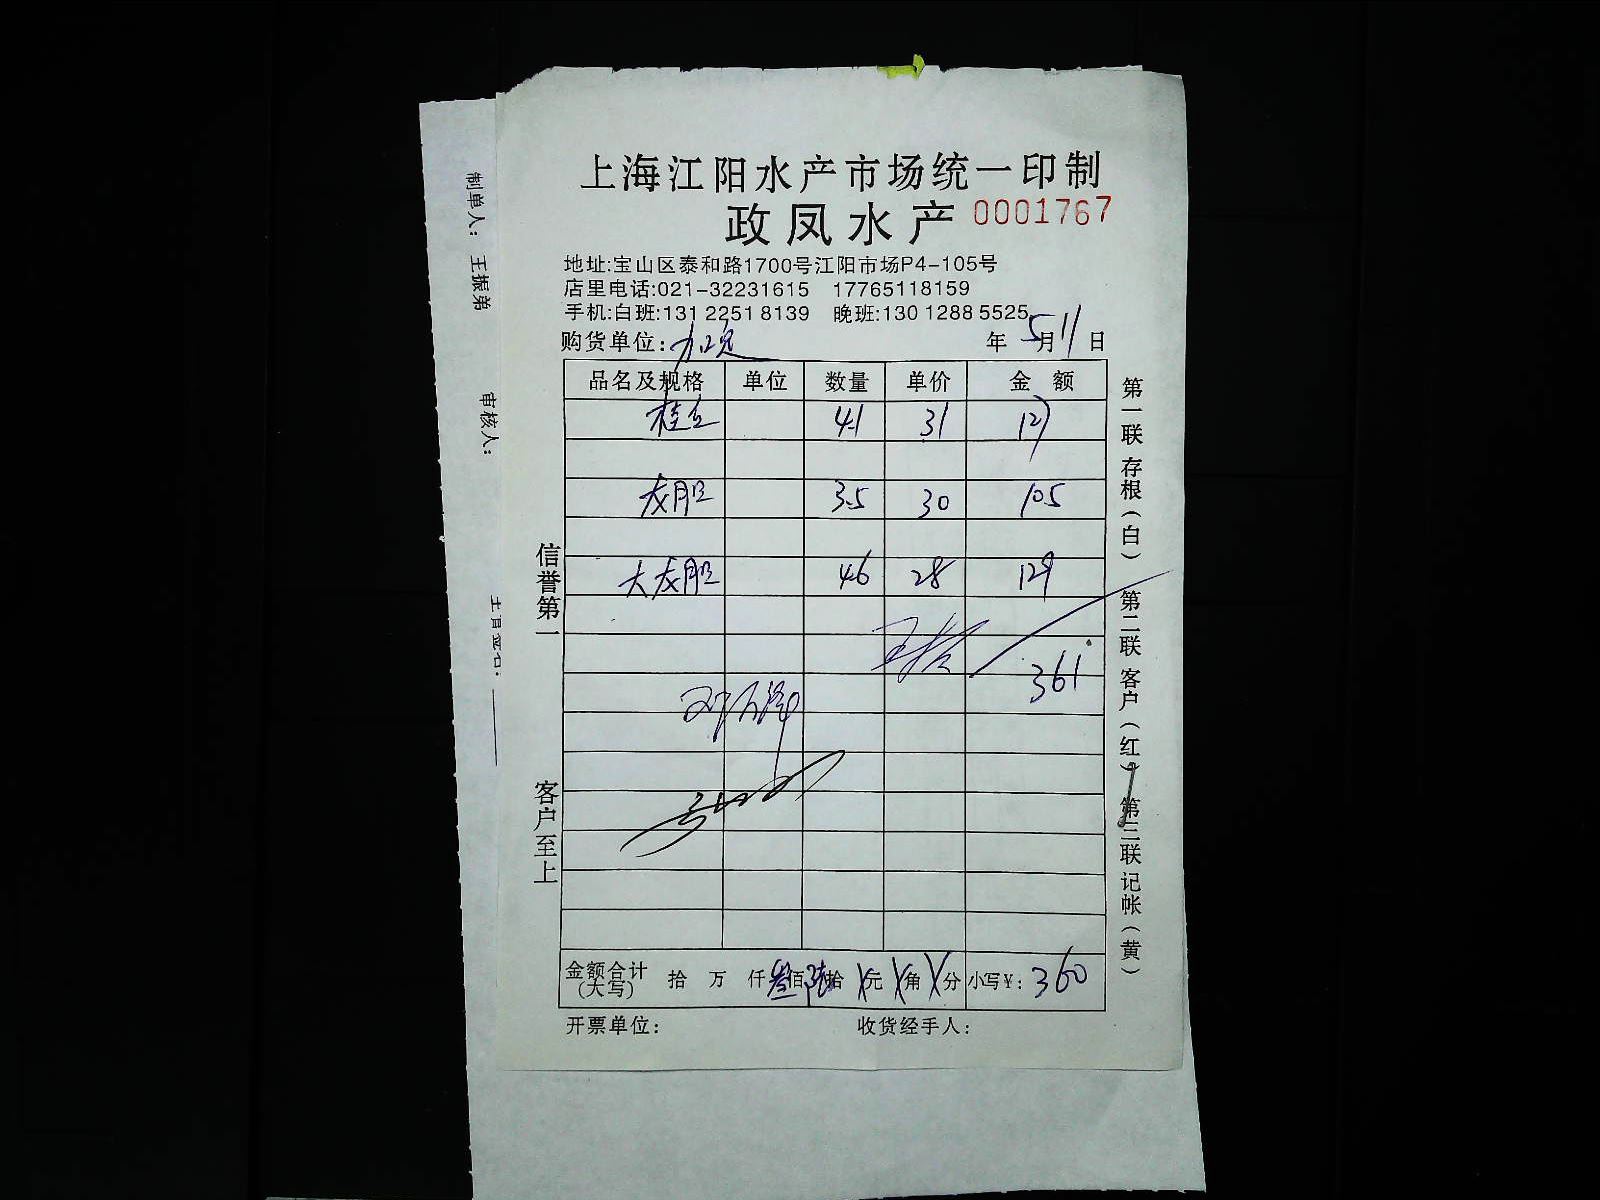 上海江阳水产市场统一印制
政凤水产 0001767
地址:宝山区泰和路1700号江阳市场P4-105号
店里电话:021-32231615 17765118159
手机:白班:131 2251 8139 晚班:130 1288 5525
购货单位: 年 5月11日
品名及规格 单位 数量 单价 金额
桂鱼 4.1 31 127
龙胆 3.5 30 105
大龙胆 4.6 28 129
361
金额合计(大写) 拾 万 仟 叁佰 陆拾 元 角 分 小写¥: 360
开票单位: 收货经手人:
信誉第一 客户至上
第一联 存根(白) 第二联 客户(红) 第三联 记帐(黄)
制单人: 王振弟 审核人: